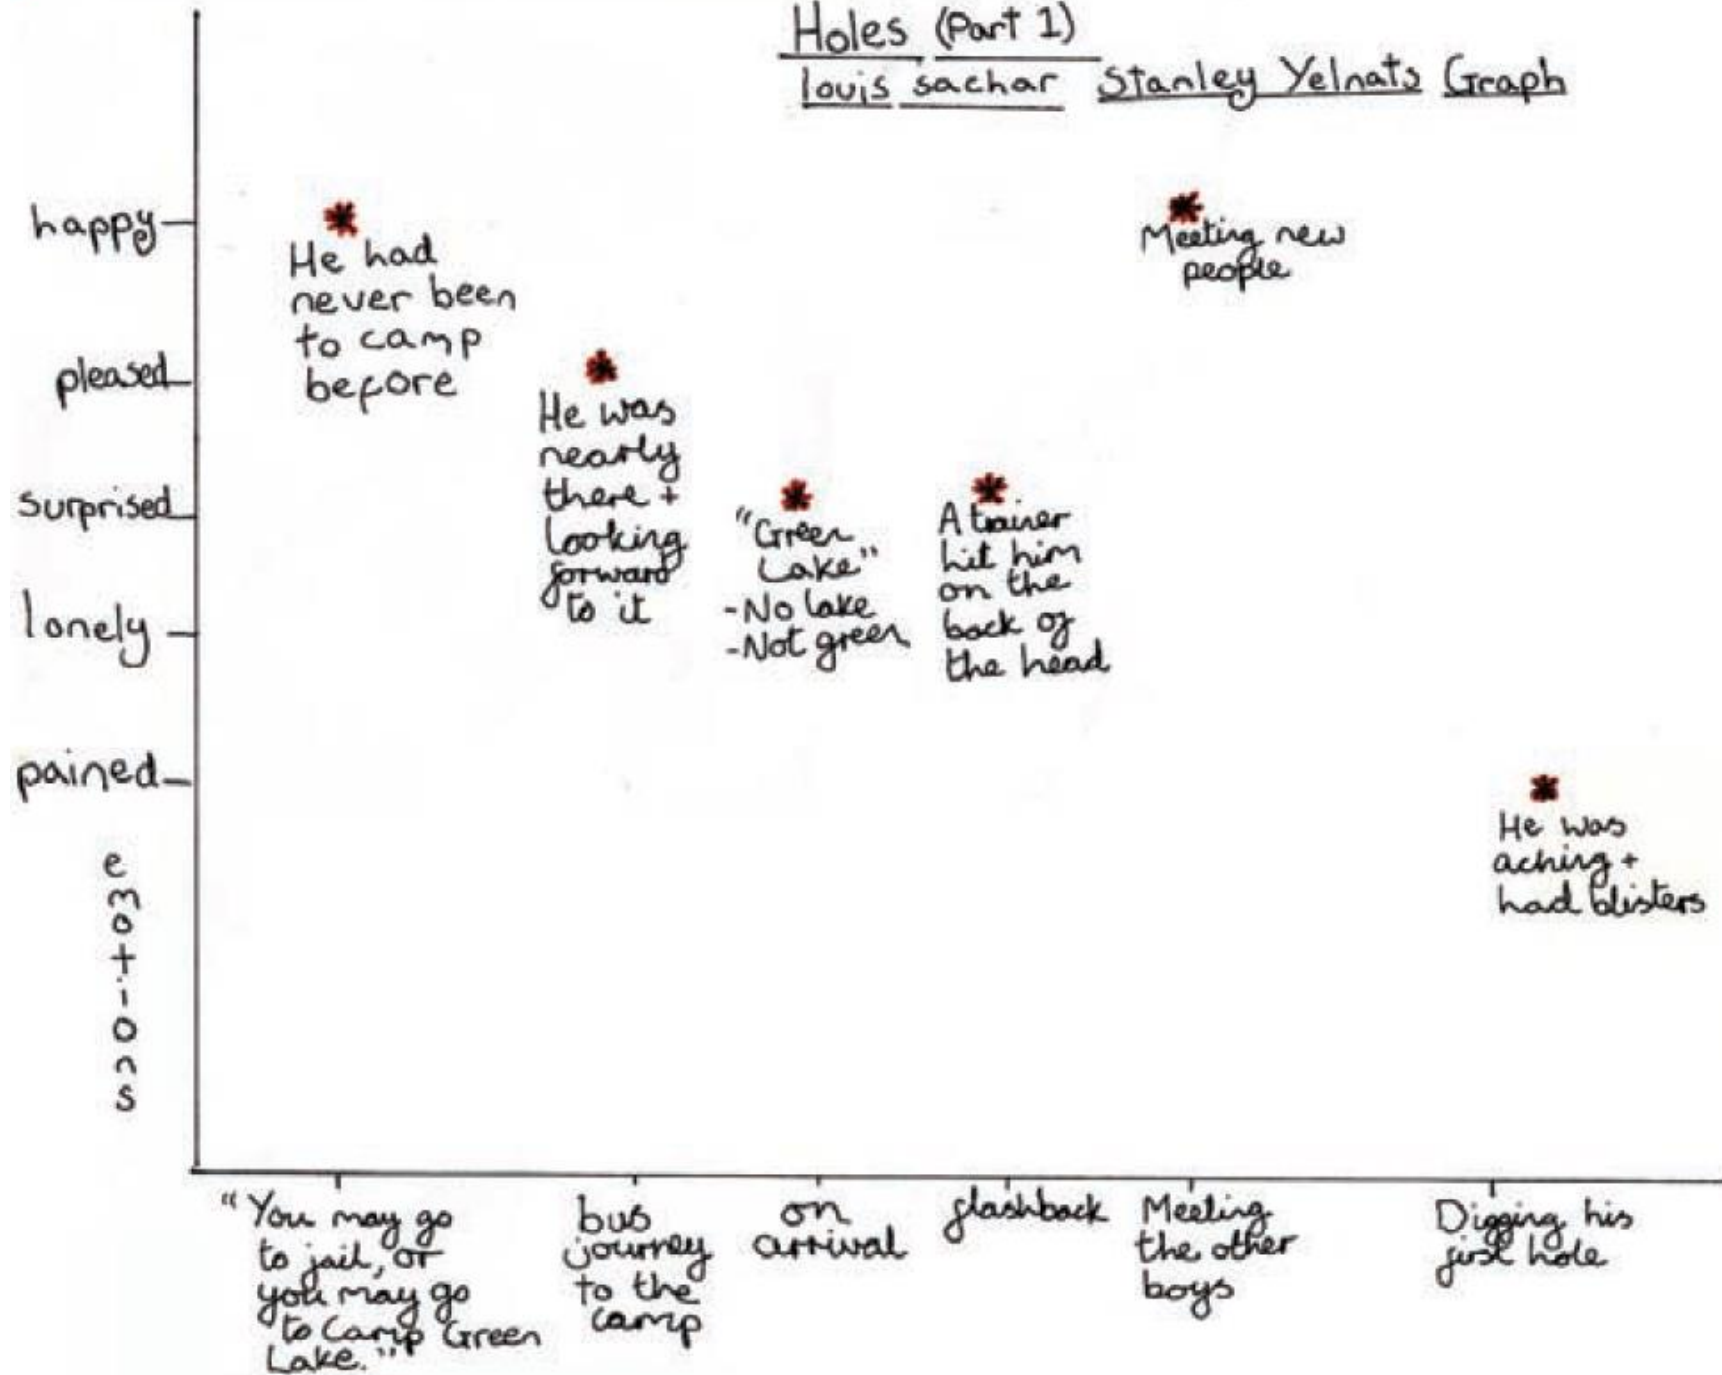 Holes (Part 1)
louis sachar Stanley Yelnats Graph
happy
pleased
surprised
lonely
pained
emotions
He had
never been
to camp
before
He was
nearly
there +
looking
forward
to it
"Green
Lake"
-No lake
-Not green
A trainer
hit him
on the
back of
the head
Meeting new
people
He was
aching +
had blisters
"You may go
to jail, or
you may go
to Camp Green
Lake."
bus
journey
to the
camp
on
arrival
flashback
Meeting
the other
boys
Digging his
first hole